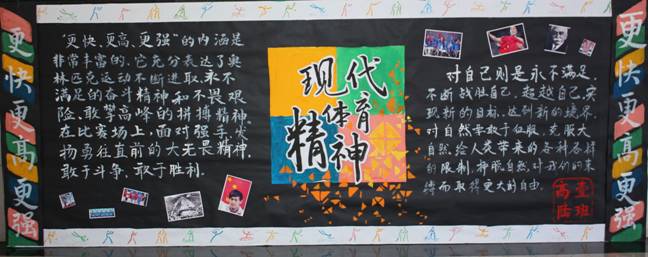 更快更高更强
"更快、更高、更强"的内涵是
非常丰富的、它充分表达了奥
林匹克运动不断进取、永不
满足的奋斗精神和不畏艰
险、敢攀高峰的拼搏精神
在比赛场上,面对强手,发
扬勇往直前的大无畏精神,
敢于斗争、敢于胜利.
现代
体育
精神
对自己则是永不满足,
不断战胜自己,超越自己,实
现新的目标,达到新的境界.
对自然要敢于征服、克服大
自然给人类带来的各种各样
的限制,挣脱自然对我们的束
缚而取得更大的自由.
高壹
陆班
更快更高更强